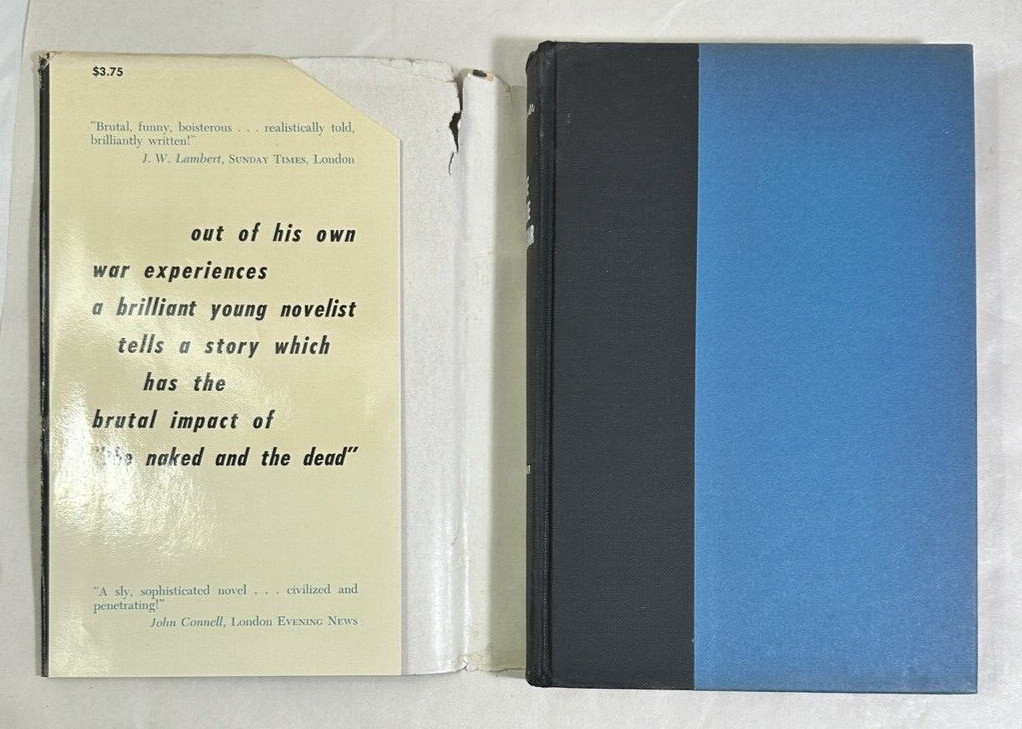 $3.75
"Brutal, funny, boisterous . . . realistically told,
brilliantly written!"
J. W. Lambert, SUNDAY TIMES, London
out of his own
war experiences
a brilliant young novelist
tells a story which
has the
brutal impact of
"the naked and the dead"
"A sly, sophisticated novel . . . civilized and
penetrating!"
John Connell, London EVENING NEWS